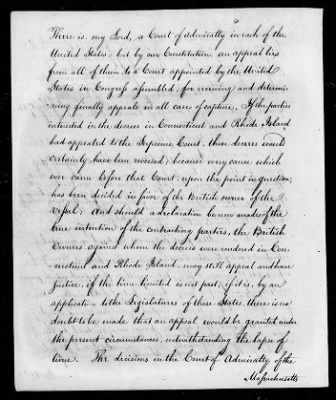 There is, my Lord, a Court of Admiralty in each of the
United States; but by our Constitution, an appeal lies
from all of them, to a Court appointed by the United
States in Congress assembled, for receiving and determi-
ning finally appeals in all cases of capture. If the parties
interested in the decrees in Connecticut and Rhode Island
had appealed to the Supreme Court, those decrees would
certainly have been reversed; because every cause which
ever came before that Court, upon the point in question,
has been decided in favor of the British owner of the
vessel: And should a declaration be now made of the
true intention of the contracting parties, the British
Owners, against whom the decrees were rendered in Con-
necticut and Rhode Island, may still appeal and have
Justice, if the time limited is not past; if it is, by an
applicatn. to the Legislatures of those States, there is no
doubt to be made that an appeal would be granted under
the present circumstances, notwithstanding the lapse of
time. The decisions in the Court of Admiralty of the
Massachusetts